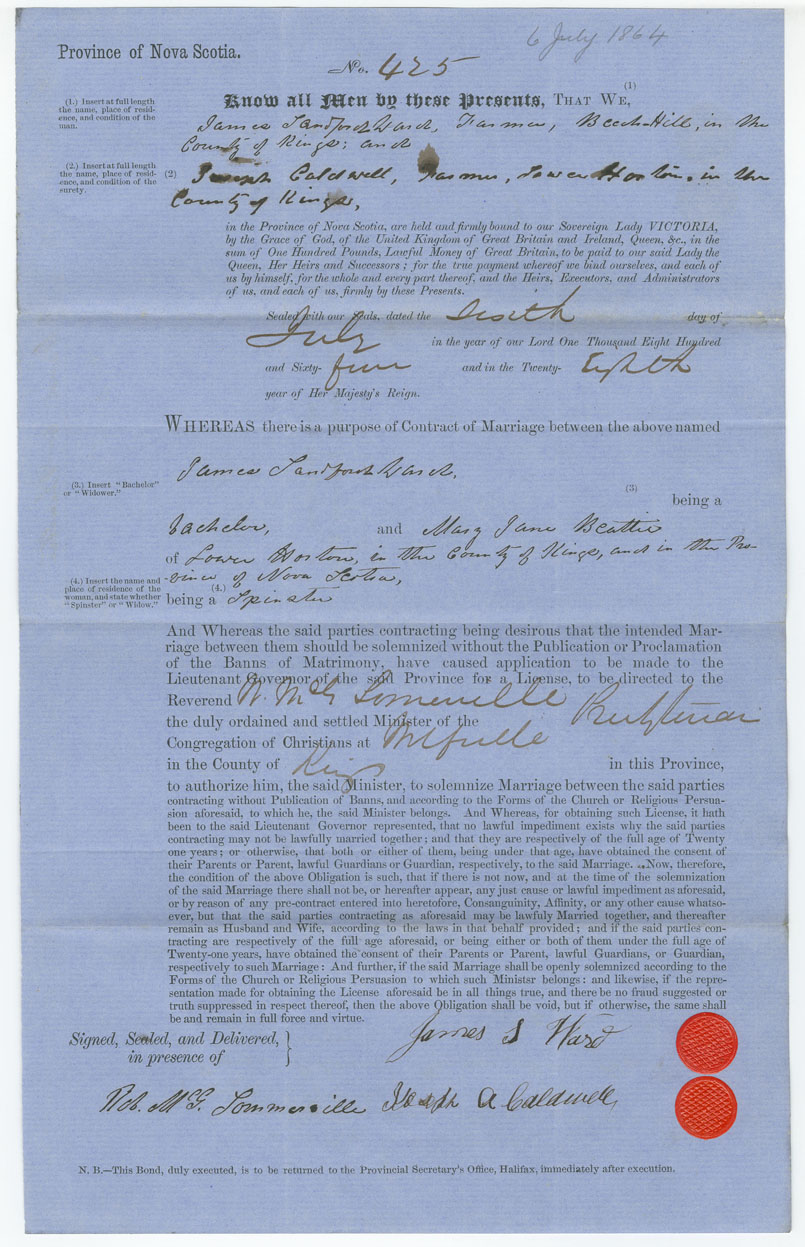 6 July 1864
Province of Nova Scotia.
No. 425
Know all Men by these Presents, THAT WE, (1)
(1.) Insert at full length
the name, place of resid-
ence, and condition of the
man.
James Sandford Ward, Farmer, Beech-Hill, in the
County of Kings; and
(2.) Insert at full length
the name, place of resid-
ence, and condition of the
surety.
(2) Joseph Caldwell, Farmer, Lower Horton, in the
County of Kings,
in the Province of Nova Scotia, are held and firmly bound to our Sovereign Lady VICTORIA,
by the Grace of God, of the United Kingdom of Great Britain and Ireland, Queen, &c., in the
sum of One Hundred Pounds, Lawful Money of Great Britain, to be paid to our said Lady the
Queen, Her Heirs and Successors; for the true payment whereof we bind ourselves, and each of
us by himself, for the whole and every part thereof, and the Heirs, Executors, and Administrators
of us, and each of us, firmly by these Presents.
Sealed with our Seals, dated the Sixth day of
July in the year of our Lord One Thousand Eight Hundred
and Sixty-four and in the Twenty-Eighth
year of Her Majesty's Reign.
WHEREAS there is a purpose of Contract of Marriage between the above named
James Sandford Ward,
(3.) Insert "Bachelor"
or "Widower."
(3) being a
bachelor, and Mary Jane Beattie
of Lower Horton, in the County of Kings, and in the Pro-
-vince of Nova Scotia,
(4.) Insert the name and
place of residence of the
woman, and state whether
"Spinster" or "Widow."
being a (4.) Spinster
And Whereas the said parties contracting being desirous that the intended Mar-
riage between them should be solemnized without the Publication or Proclamation
of the Banns of Matrimony, have caused application to be made to the
Lieutenant Governor of the said Province for a License, to be directed to the
Reverend R. McG Somerville
the duly ordained and settled Minister of the Presbyterian
Congregation of Christians at Wolfville
in the County of Kings in this Province,
to authorize him, the said Minister, to solemnize Marriage between the said parties
contracting without Publication of Banns, and according to the Forms of the Church or Religious Persua-
sion aforesaid, to which he, the said Minister belongs. And Whereas, for obtaining such License, it hath
been to the said Lieutenant Governor represented, that no lawful impediment exists why the said parties
contracting may not be lawfully married together; and that they are respectively of the full age of Twenty
one years; or otherwise, that both or either of them, being under that age, have obtained the consent of
their Parents or Parent, lawful Guardians or Guardian, respectively, to the said Marriage. Now, therefore,
the condition of the above Obligation is such, that if there is not now, and at the time of the solemnization
of the said Marriage there shall not be, or hereafter appear, any just cause or lawful impediment as aforesaid,
or by reason of any pre-contract entered into heretofore, Consanguinity, Affinity, or any other cause whatso-
ever, but that the said parties contracting as aforesaid may be lawfuly Married together, and thereafter
remain as Husband and Wife, according to the laws in that behalf provided; and if the said parties con-
tracting are respectively of the full age aforesaid, or being either or both of them under the full age of
Twenty-one years, have obtained the consent of their Parents or Parent, lawful Guardians, or Guardian,
respectively to such Marriage: And further, if the said Marriage shall be openly solemnized according to the
Forms of the Church or Religious Persuasion to which such Ministsr belongs: and likewise, if the repre-
sentation made for obtaining the License aforesaid be in all things true, and there be no fraud suggested or
truth suppressed in respect thereof, then the above Obligation shall be void, but if otherwise, the same shall
be and remain in full force and virtue.
Signed, Sealed, and Delivered,
in presence of
James S Ward
Rob. McG. Sommerville Joseph A Caldwell
N. B.—This Bond, duly executed, is to be returned to the Provincial Secretary's Office, Halifax, immediately after execution.